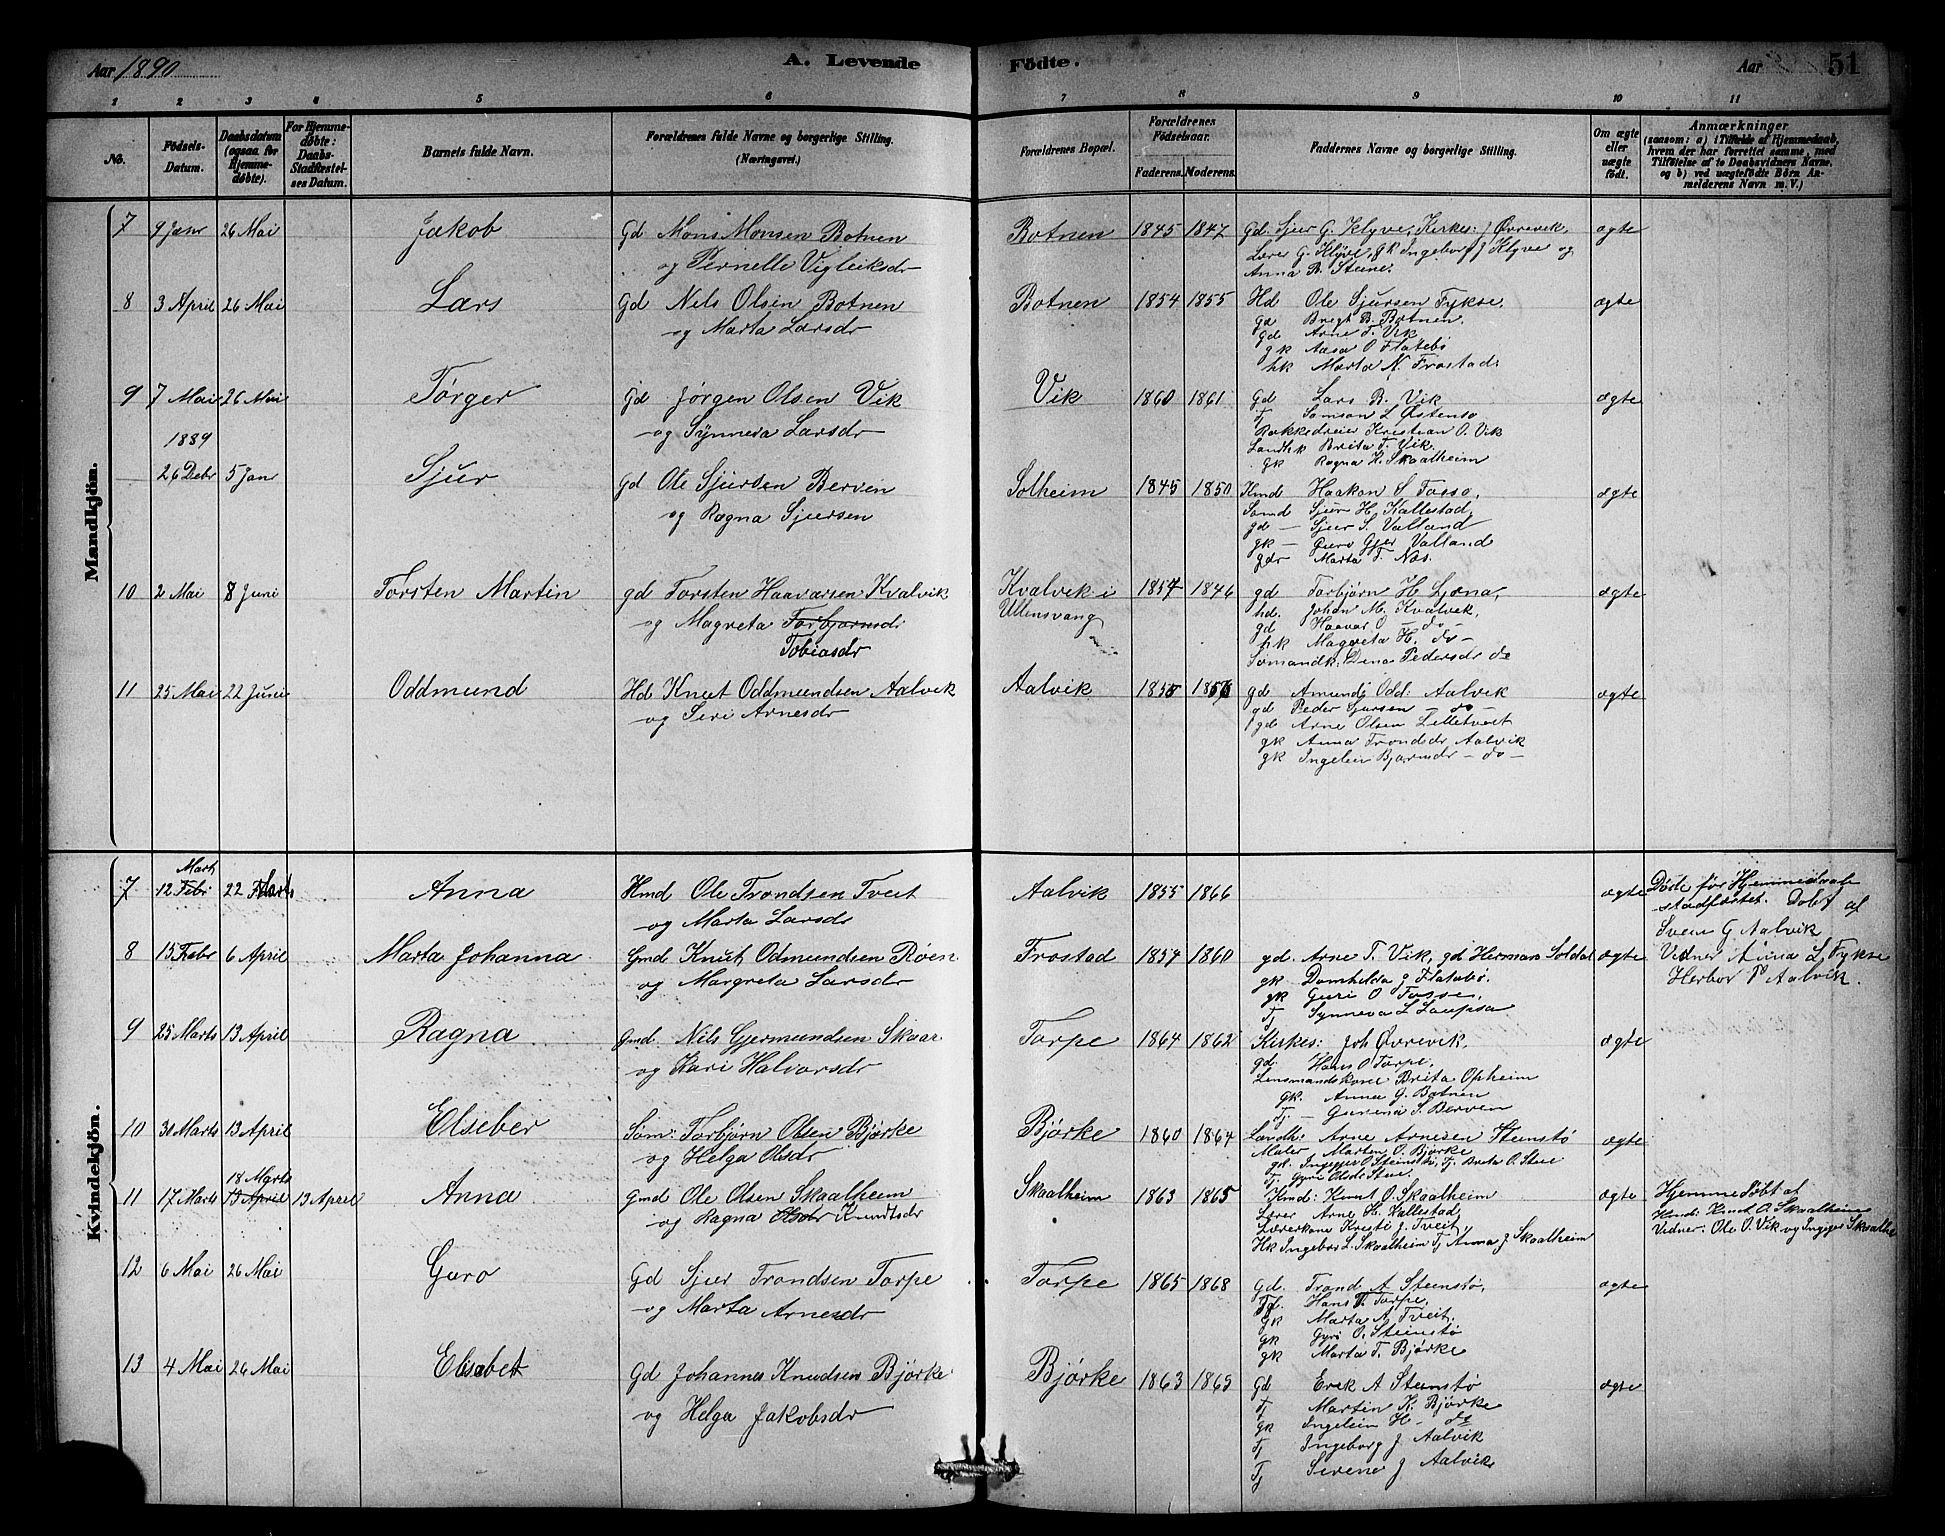 Aar 1890
A. Levende Fødte.
Aar
51
1 2 3 4 5 6 7 8 9 10 11
No.
Fødsels-Datum.
Daabsdatum (ogsaa for Hjemme-døbte).
For Hjemme-døbte: Daabs-Stadfæstel-ses Datum.
Barnets fulde Navn.
Forældrenes fulde Navne og borgerlige Stilling. (Næringsvei.)
Forældrenes Bopæl.
Forældrenes Fødselsaar.
Faderens. Moderens.
Faddernes Navne og borgerlige Stilling.
Om ægte eller uægte født.
Anmærkninger
(saasom: a) i Tilfælde af Hjemmedaab,
hvem der har forrettet samme, med
Tilføielse af to Daabsvidners Navne,
og b) ved uægtefødte Børn An-
melderens Navn m. V.)
Mandkjøn.
7 9 Janr 26 Mai Jakob Gd Mons Monsen Botnen Botnen 1845 1847 Gd. Sjur G. Klyve, Kirkes: J Øvrevik, ægte
og Pernelle Vigleiksdr Lærer G. Klyve, gk Ingeborg J Klyve og
Anna B. Steine.
8 3 April 26 Mai Lars Gd Nils Olsen Botnen Botnen 1854 1855 Hd Ole Sjursen Fykse, ægte
og Marta Larsdr gd Brigt B. Botnen.
gd Arne T. Vik
gk Aasa O Flatebø
hk Marta N. Frostad:
9 7 Mai 26 Mai Tørger Gd Jørgen Olsen Vik Vik 1860 1861 Gd Lars B. Vik ægte
og Synneva Larsdr Tj Samson L Østensø
Rokkedreier Kristian O. Vik
Landhk Brita T. Vik.
gk Ragna K. Skaalheim
1889
26 Debr 5 Jan Sjur Gd Ole Sjursen Berven Solheim 1845 1850 Kmd Haakon S Tosso, ægte
og Ragna Sjursen Somd Sjur H. Kallestad,
gd – Sjur S. Valland
gk – Guro Gjer Valland
gdr Marta T. Nes.
10 2 Mai 8 Juni Torsten Martin gd Torsten Haavarsen Kvalvik Kvalvik i 1857 1846 gd Torbjørn H Ljona, ægte
og Magreta Torbjørnsd: Ullensvang hd. Johan M. Kvalvik,
Tobiasdr gd Haavar O – do –
hk Magreta H. do –
Sømandk. Dina Pedersdr do
11 25 Mai 22 Juni Oddmund Hd Knut Oddmundsen Aalvik Aalvik 1855 1856 gd Amund Odd: Aalvik ægte
og Siri Arnesdr gd Peder Sjursen – do –
gd Arne Olsen Lilletveit
gk Anna Trondsdr Aalvik
gk Ingelin Bjørnsdr – do –
Kvindekjøn.
Marts
7 12 Febr 22 Marts Anna Hmd Ole Trondsen Tveit Aalvik 1855 1866 ægte Døde før Hjemmedaab
og Marta Larsdr stadfæstet. Døbt af
Svein G Aalvik
8 15 Febr 6 April Marta Johanna Gmd Knut Odmundsen Røen Frostad 1857 1860 gd. Arne T. Vik, gd Herman Soldal ægte Vidner Anna L Fykse
og Margreta Larsdr gk Domhilda J Flatabø. Herbor T Aalvik.
gk Guri O Tosse,
Tj Synneva L Laupsa
9 25 Marts 13 April Ragna Gmd Nils Gjermundsen Skaar Torpe 1864 1862 Kirkes: Joh Øvrevik, ægte
og Kari Halvorsdr gd. Hans O Torpe,
Lensmandskone Brita Opheim
gk. Anna G. Botnen
Tj – Gunina S. Berven
10 31 Marts 13 April Elseber Søm: Torbjørn Olsen Bjørke Bjørke 1860 1864 Landh: Arne Arnesen Steinstø ægte
og Helga Olsdr Maler Marten O. Bjørke
gd. Ingeger O Steinstø, Tj. Brita O. Steie
Tj Gyri Olsdr Steie.
18 Marts
11 17 Marts 13 April 13 April Anna Gmd Ole Olsen Skaalheim Skaalheim 1863 1865 Kmd: Knut O. Skaalheim ægte Hjemmedøbt af
og Ragna Olsdr Knudtsdr Lærer Arne H. Kallestad, Kmd: Knut O. Skaalheim
Lærerkone Kresti J. Tveit, Vidner. Ole O. Vik og Ingiger Skaalhe
Hk Ingebor L. Skaalheim Tj Anna J Skaalheim
12 6 Mai 26 Mai Guro Gd Sjur Trondsen Torpe Torpe 1865 1868 gd. Trond A Steinstø, ægte
og Marta Arnesdr Tj. Hans T. Torpe,
gk Marta A Tveit,
gk Gyri O. Steinstø
gk Marta T. Bjørke
13 4 Mai 26 Mai Elisabet Gd Johannes Knudsen Bjørke Bjørke 1863 1865 Gd Erik A Steinstø ægte
og Helga Jakobsdr Tj Martin K. Bjørke
gk Ingelein H – do
Tj Ingeborg J Aalvik
Tj Sirene J Aalvik